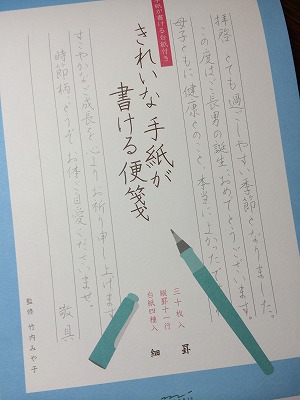 手紙が書ける台紙付き
拝啓 とても過ごしやすい季節となりました。
この度はご長男の誕生、おめでとうございます。
母子ともに健康とのこと、本当によかったです
きれいな手紙が
書ける便箋
すこやかなご成長を心よりお祈り申し上げます
時節柄、どうぞお体ご自愛くださいませ。
敬具
三十枚入
縦罫十一行
台紙四種入
細 罫
監修 竹内みや子